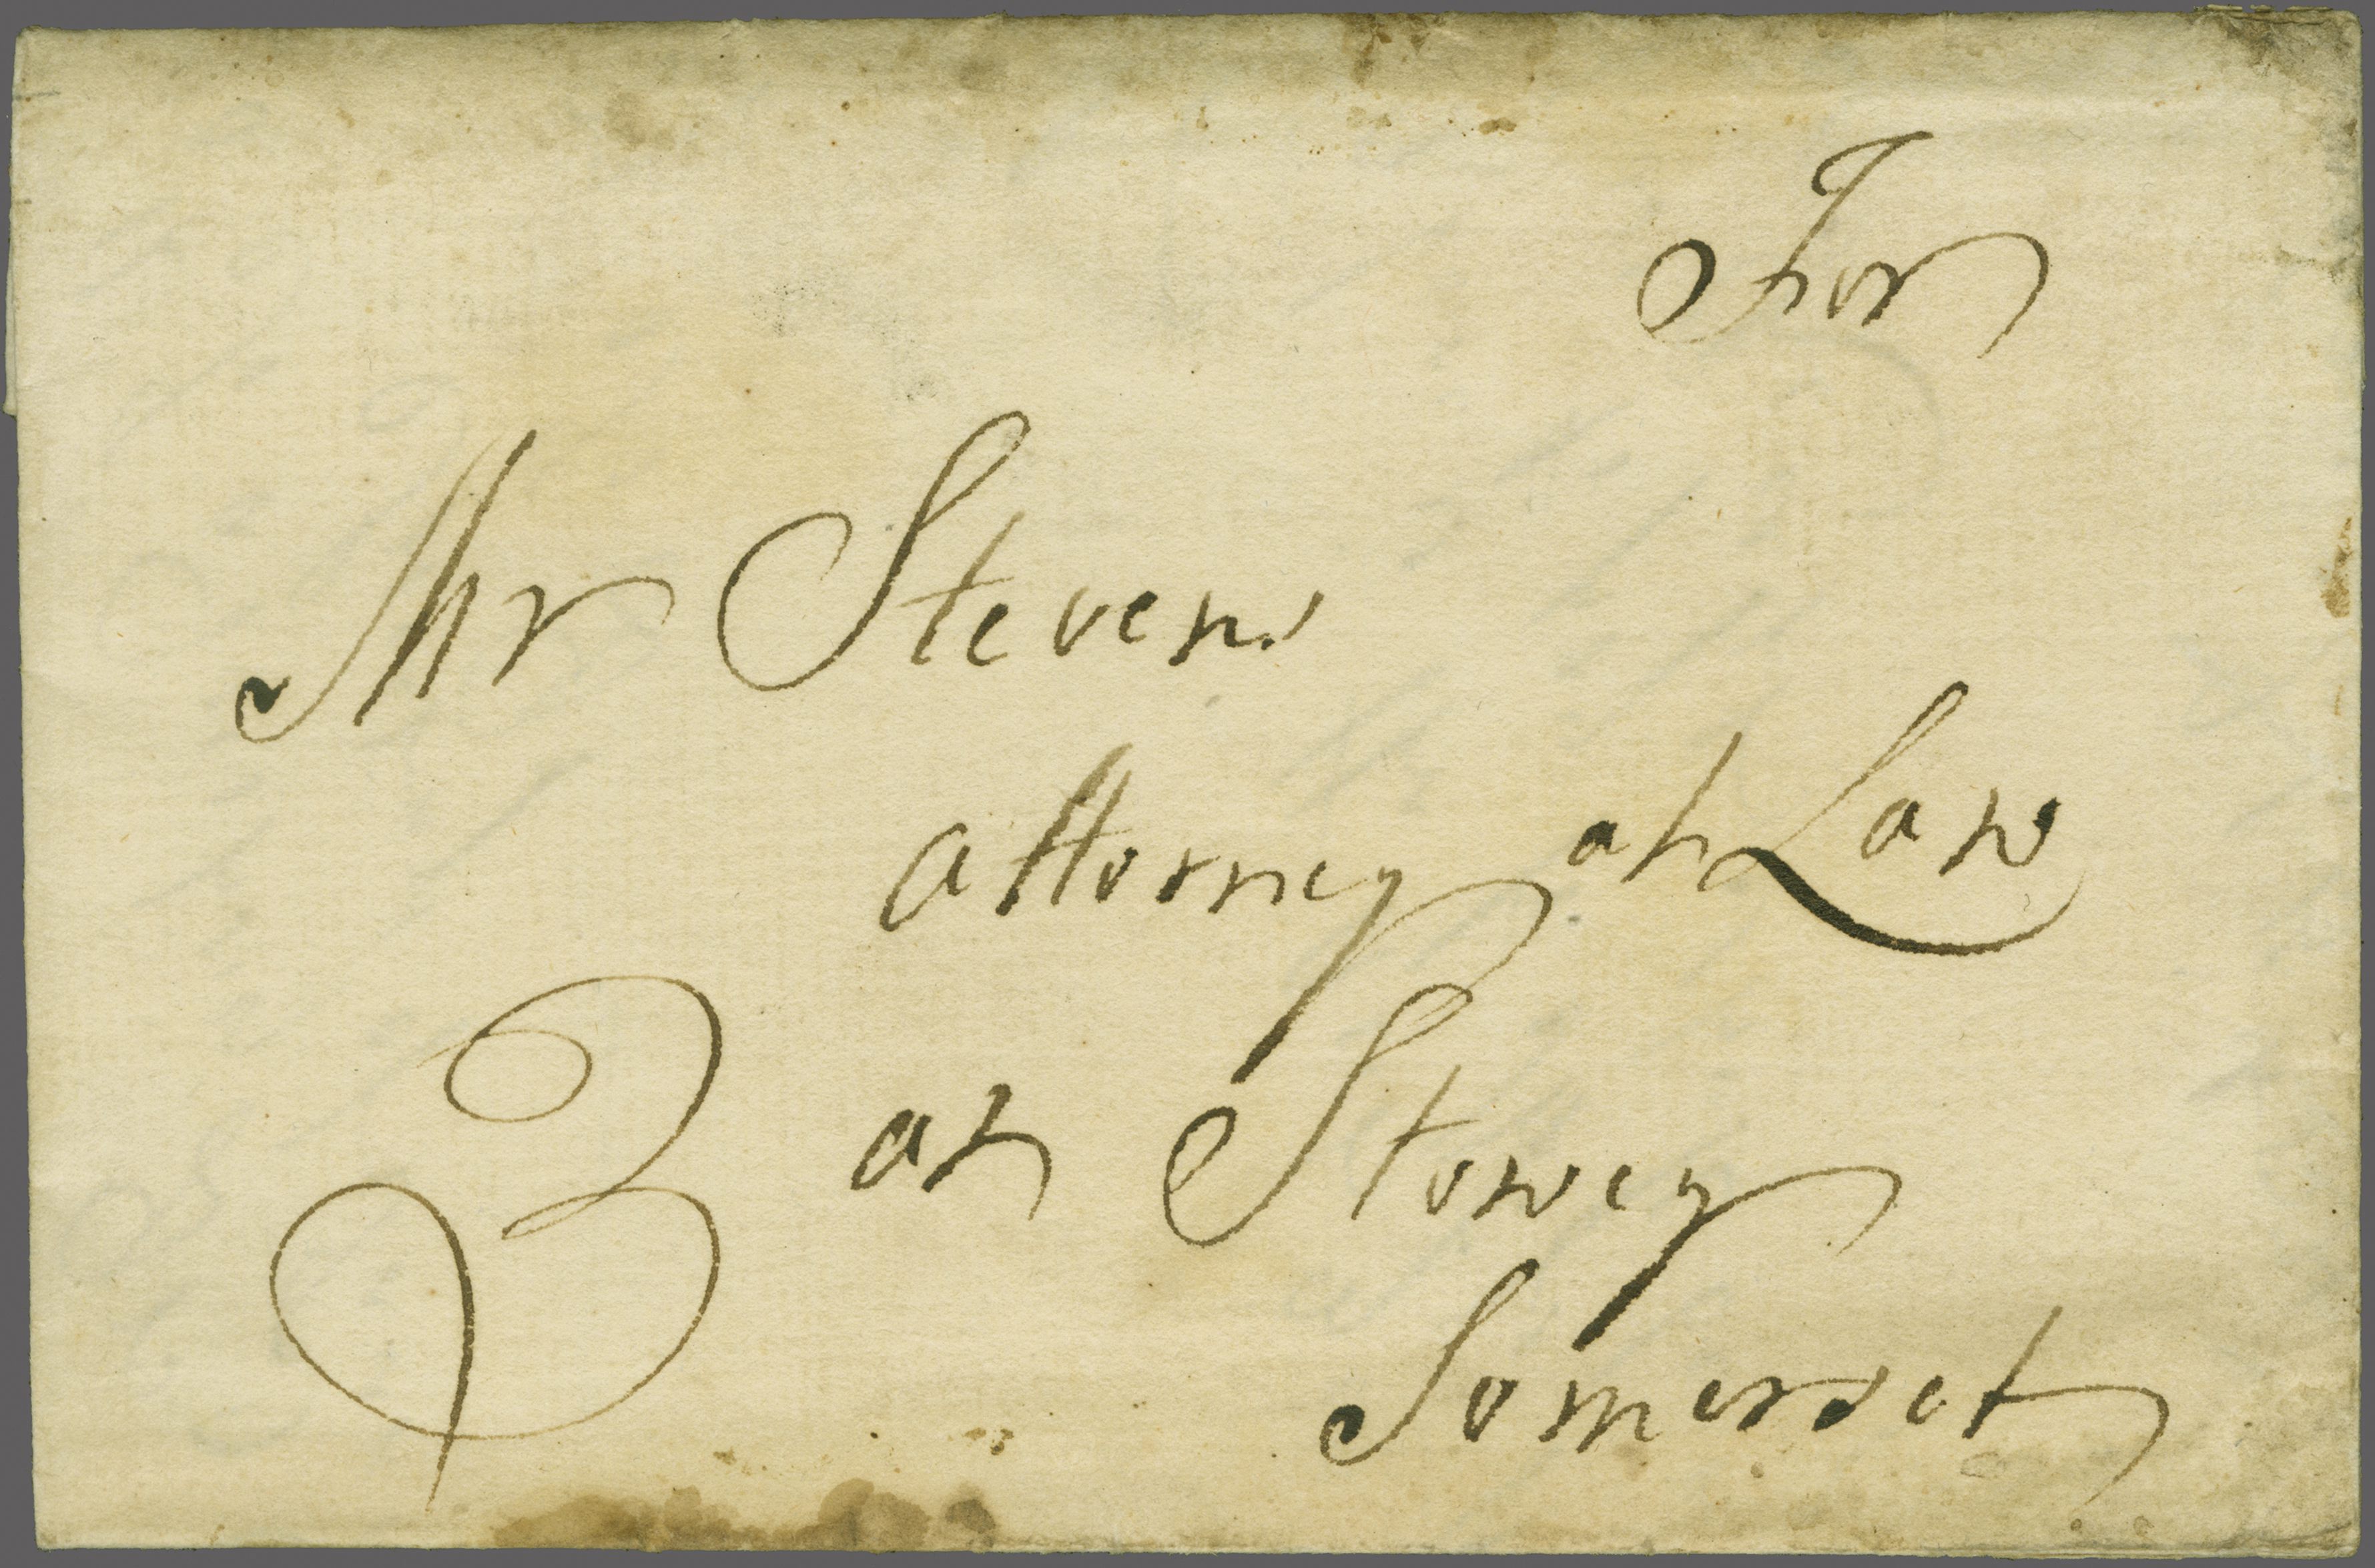 For
Mr Stevens
Attorney at Law
3 at Stowey
Somerset